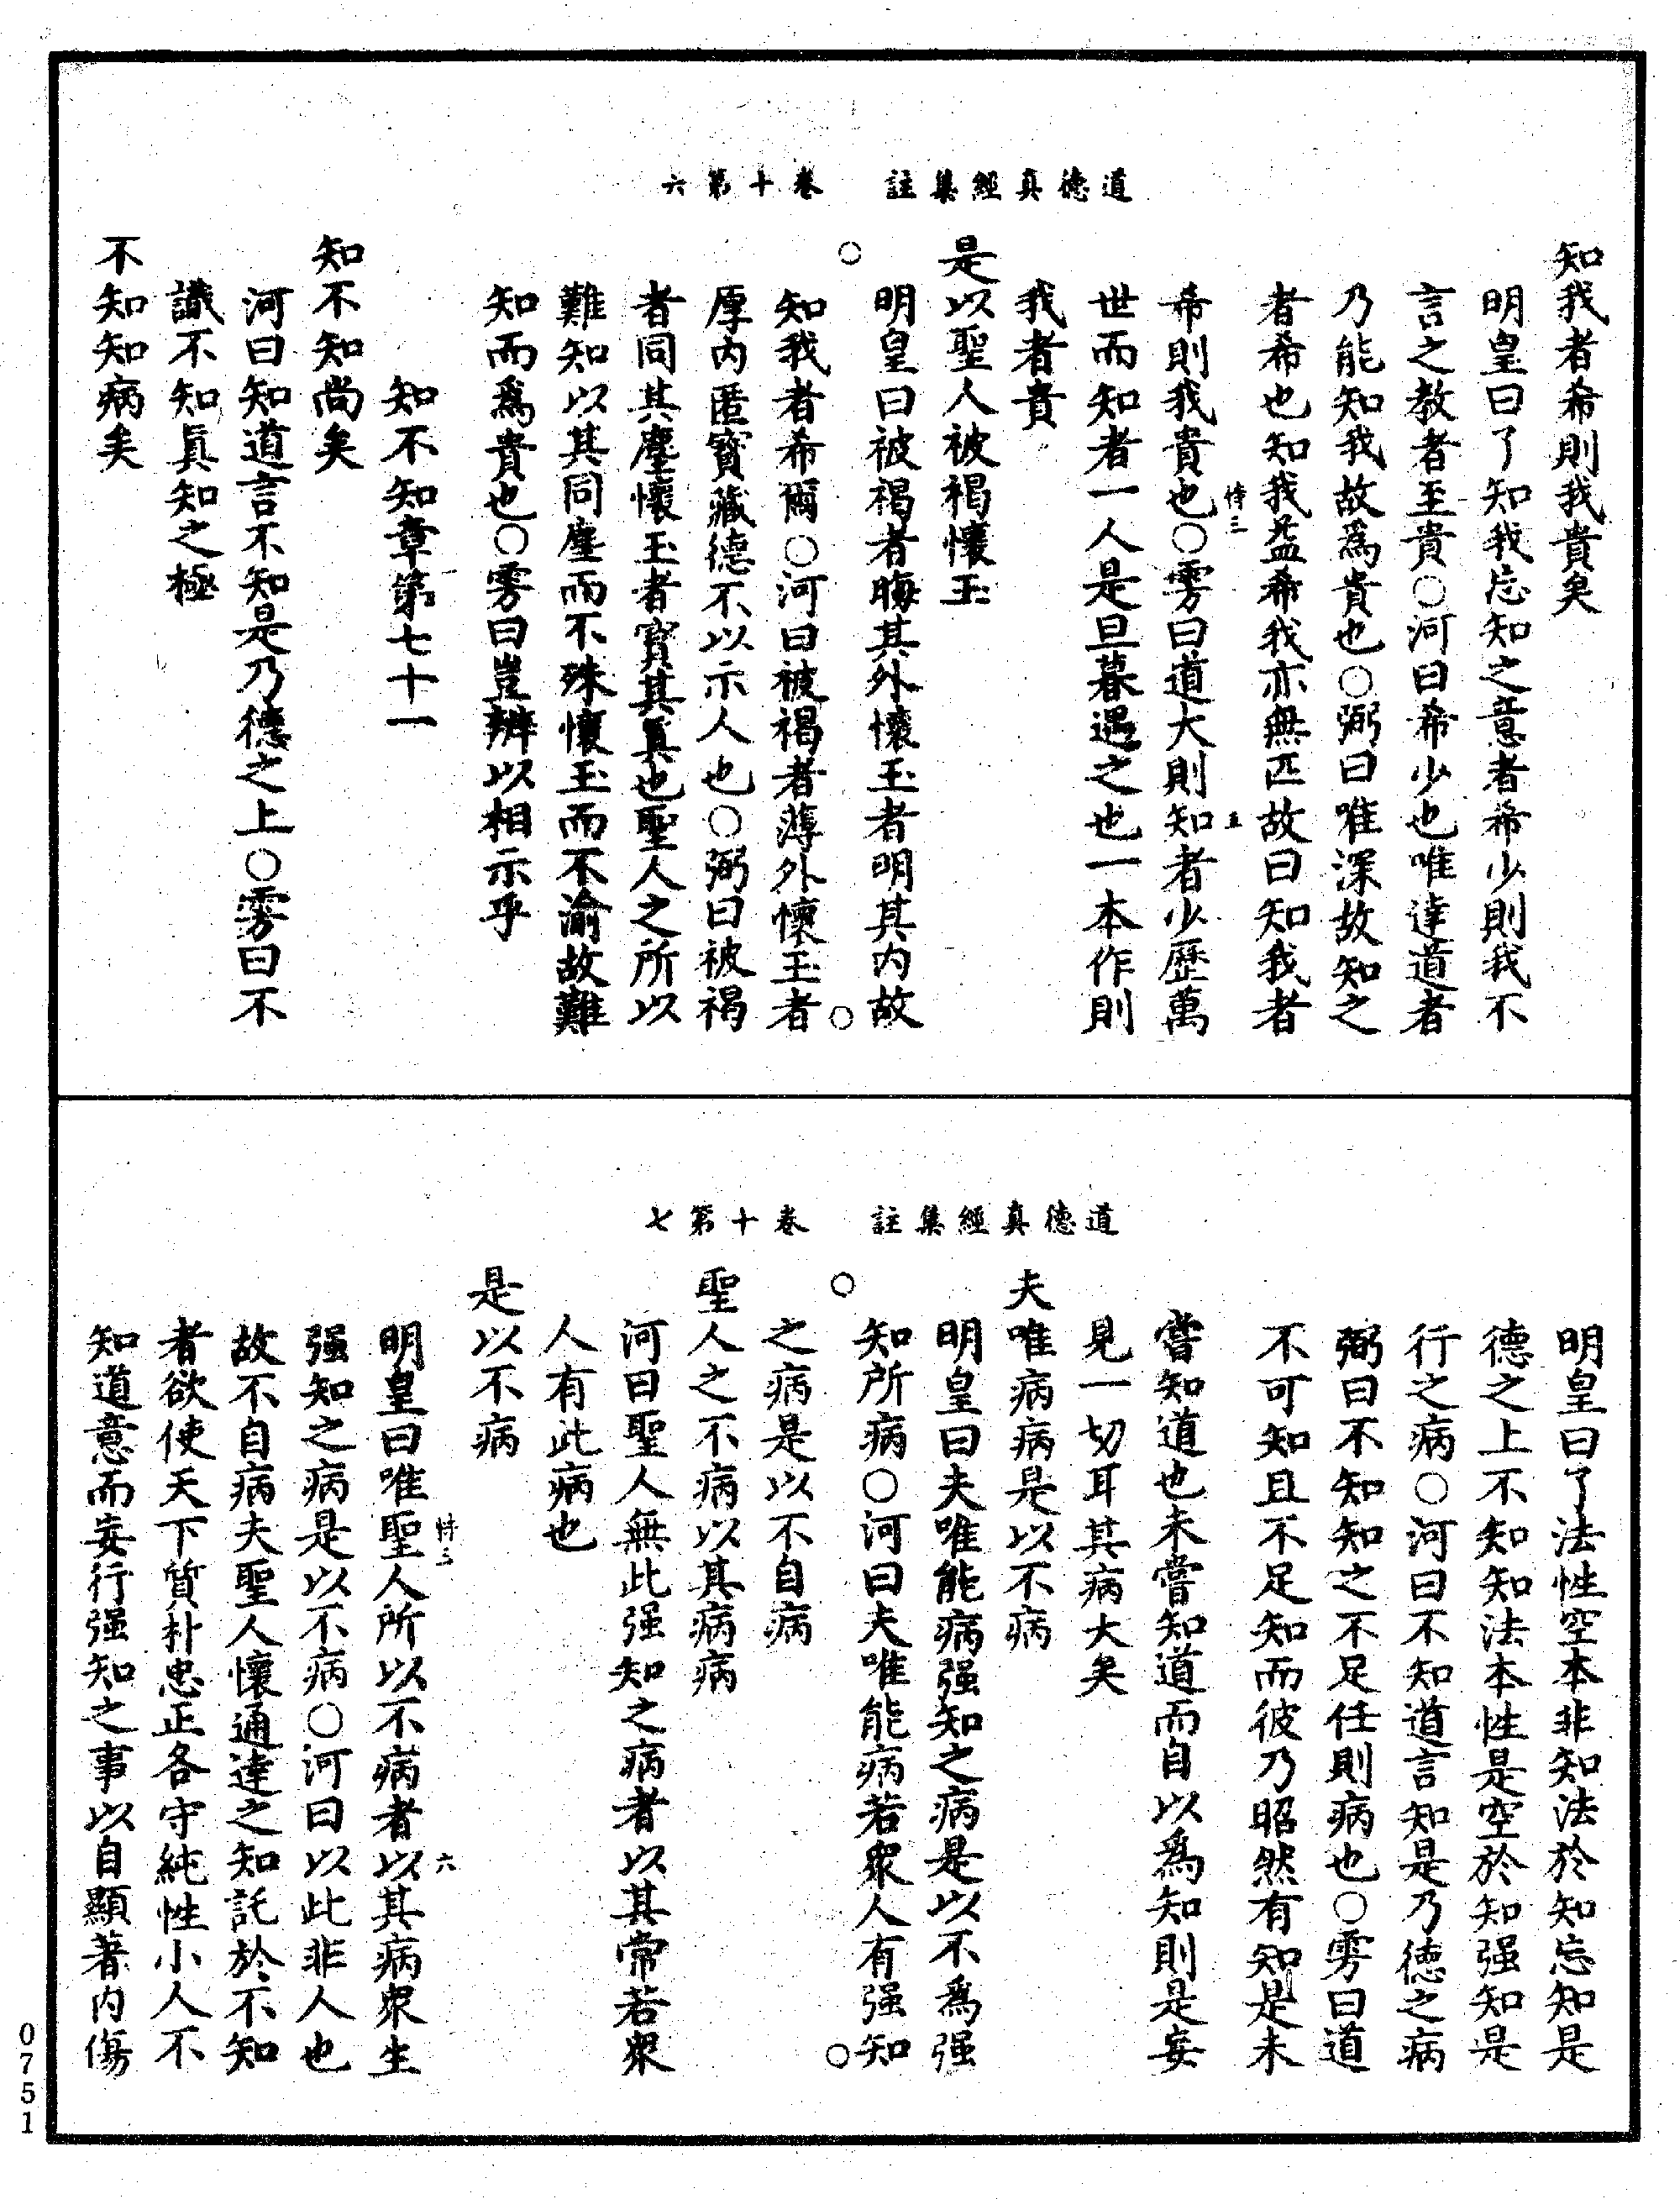 道德真經集註　卷十第六
知我者希則我貴矣
明皇曰了知我忘知之意者希少則我不
言之教者至貴○河曰希少也唯達道者
乃能知我故爲貴也○弼曰唯深故知之
者希也知我益希我亦無匹故曰知我者
恃三　五
希則我貴也○雱曰道大則知者少歷萬
世而知者一人是旦暮遇之也一本作則
我者貴
是以聖人被褐懷玉
明皇曰被褐者晦其外懷玉者明其内故
知我者希爾○河曰被褐者薄外懷玉者
厚内匿寳藏德不以示人也○弼曰被褐
者同其塵懷玉者寳其眞也聖人之所以
難知以其同塵而不殊懷玉而不渝故難
知而爲貴也○雱曰豈辨以相示乎
知不知章第七十一
知不知尚矣
河曰知道言不知是乃德之上○雱曰不
識不知眞知之極
不知知病矣
道德真經集註　卷十第七
明皇曰了法性空本非知法於知忘知是
德之上不知知法本性是空於知强知是
行之病○河曰不知道言知是乃德之病
弼曰不知知之不足任則病也○雱曰道
不可知且不足知而彼乃昭然有知是未
嘗知道也未嘗知道而自以爲知則是妄
見一切耳其病大矣
夫唯病病是以不病
明皇曰夫唯能病强知之病是以不爲强
知所病○河曰夫唯能病若衆人有强知
之病是以不自病
聖人之不病以其病病
河曰聖人無此强知之病者以其常苦衆
人有此病也
是以不病
恃三　六
明皇曰唯聖人所以不病者以其病衆生
强知之病是以不病○河曰以此非人也
故不自病夫聖人懷通達之知託於不知
者欲使天下質朴忠正各守純性小人不
知道意而妄行强知之事以自顯著内傷
0751